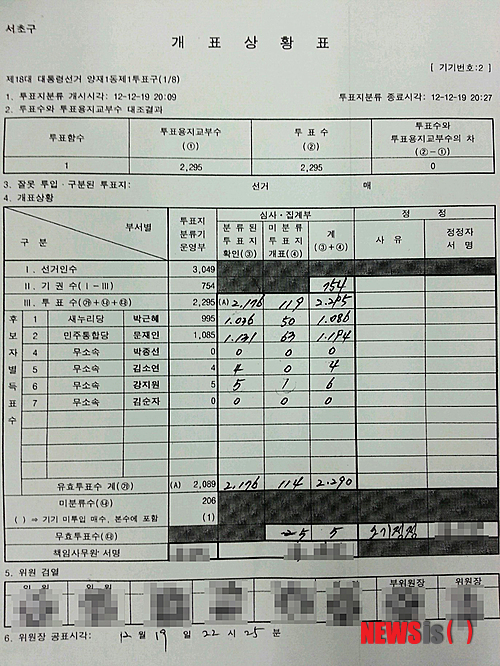 서초구
개 표 상 황 표
[ 기기번호:2 ]
제18대 대통령선거 양재1동제1투표구(1/8)
1. 투표지분류 개시시각: 12-12-19 20:09 투표지분류 종료시각: 12-12-19 20:27
2. 투표수와 투표용지교부수 대조결과
투표함수 투표용지교부수 (①) 투 표 수 (②) 투표수와 투표용지교부수의 차 (②-①)
1 2,295 2,295 0
3. 잘못 투입·구분된 투표지: 선거 매
4. 개표상황
부서별 구 분 투표지 분류기 운영부 심사·집계부 정 정
분 류 된 투 표 지 확인(③) 미 분 류 투 표 지 개표(④) 계 (③+④) 사 유 정정자 서 명
Ⅰ. 선거인수 3,049
Ⅱ. 기 권 수(Ⅰ-Ⅲ) 754 754
Ⅲ. 투 표 수 2,295 (A) 2,176 119 2,295
후보자별득표수
1 새누리당 박근혜 995 1,036 50 1,086
2 민주통합당 문재인 1,085 1,131 63 1,194
4 무소속 박종선 0 0 0 0
5 무소속 김소연 4 4 0 4
6 무소속 강지원 5 5 1 6
7 무소속 김순자 0 0 0 0
유효투표수 계(㉮) (A) 2,089 2,176 114 2,290
미분류수(㉯) 206
( ) ⇒ 기기 미투입 매수, 본수에 포함 (1)
무효투표수 5 5
책임사무원 서명
5. 위원 검열
위 원 위 원 부위원장 위원장
6. 위원장 공표시각: 12 월 19 일 22 시 25 분
NEWSis( )